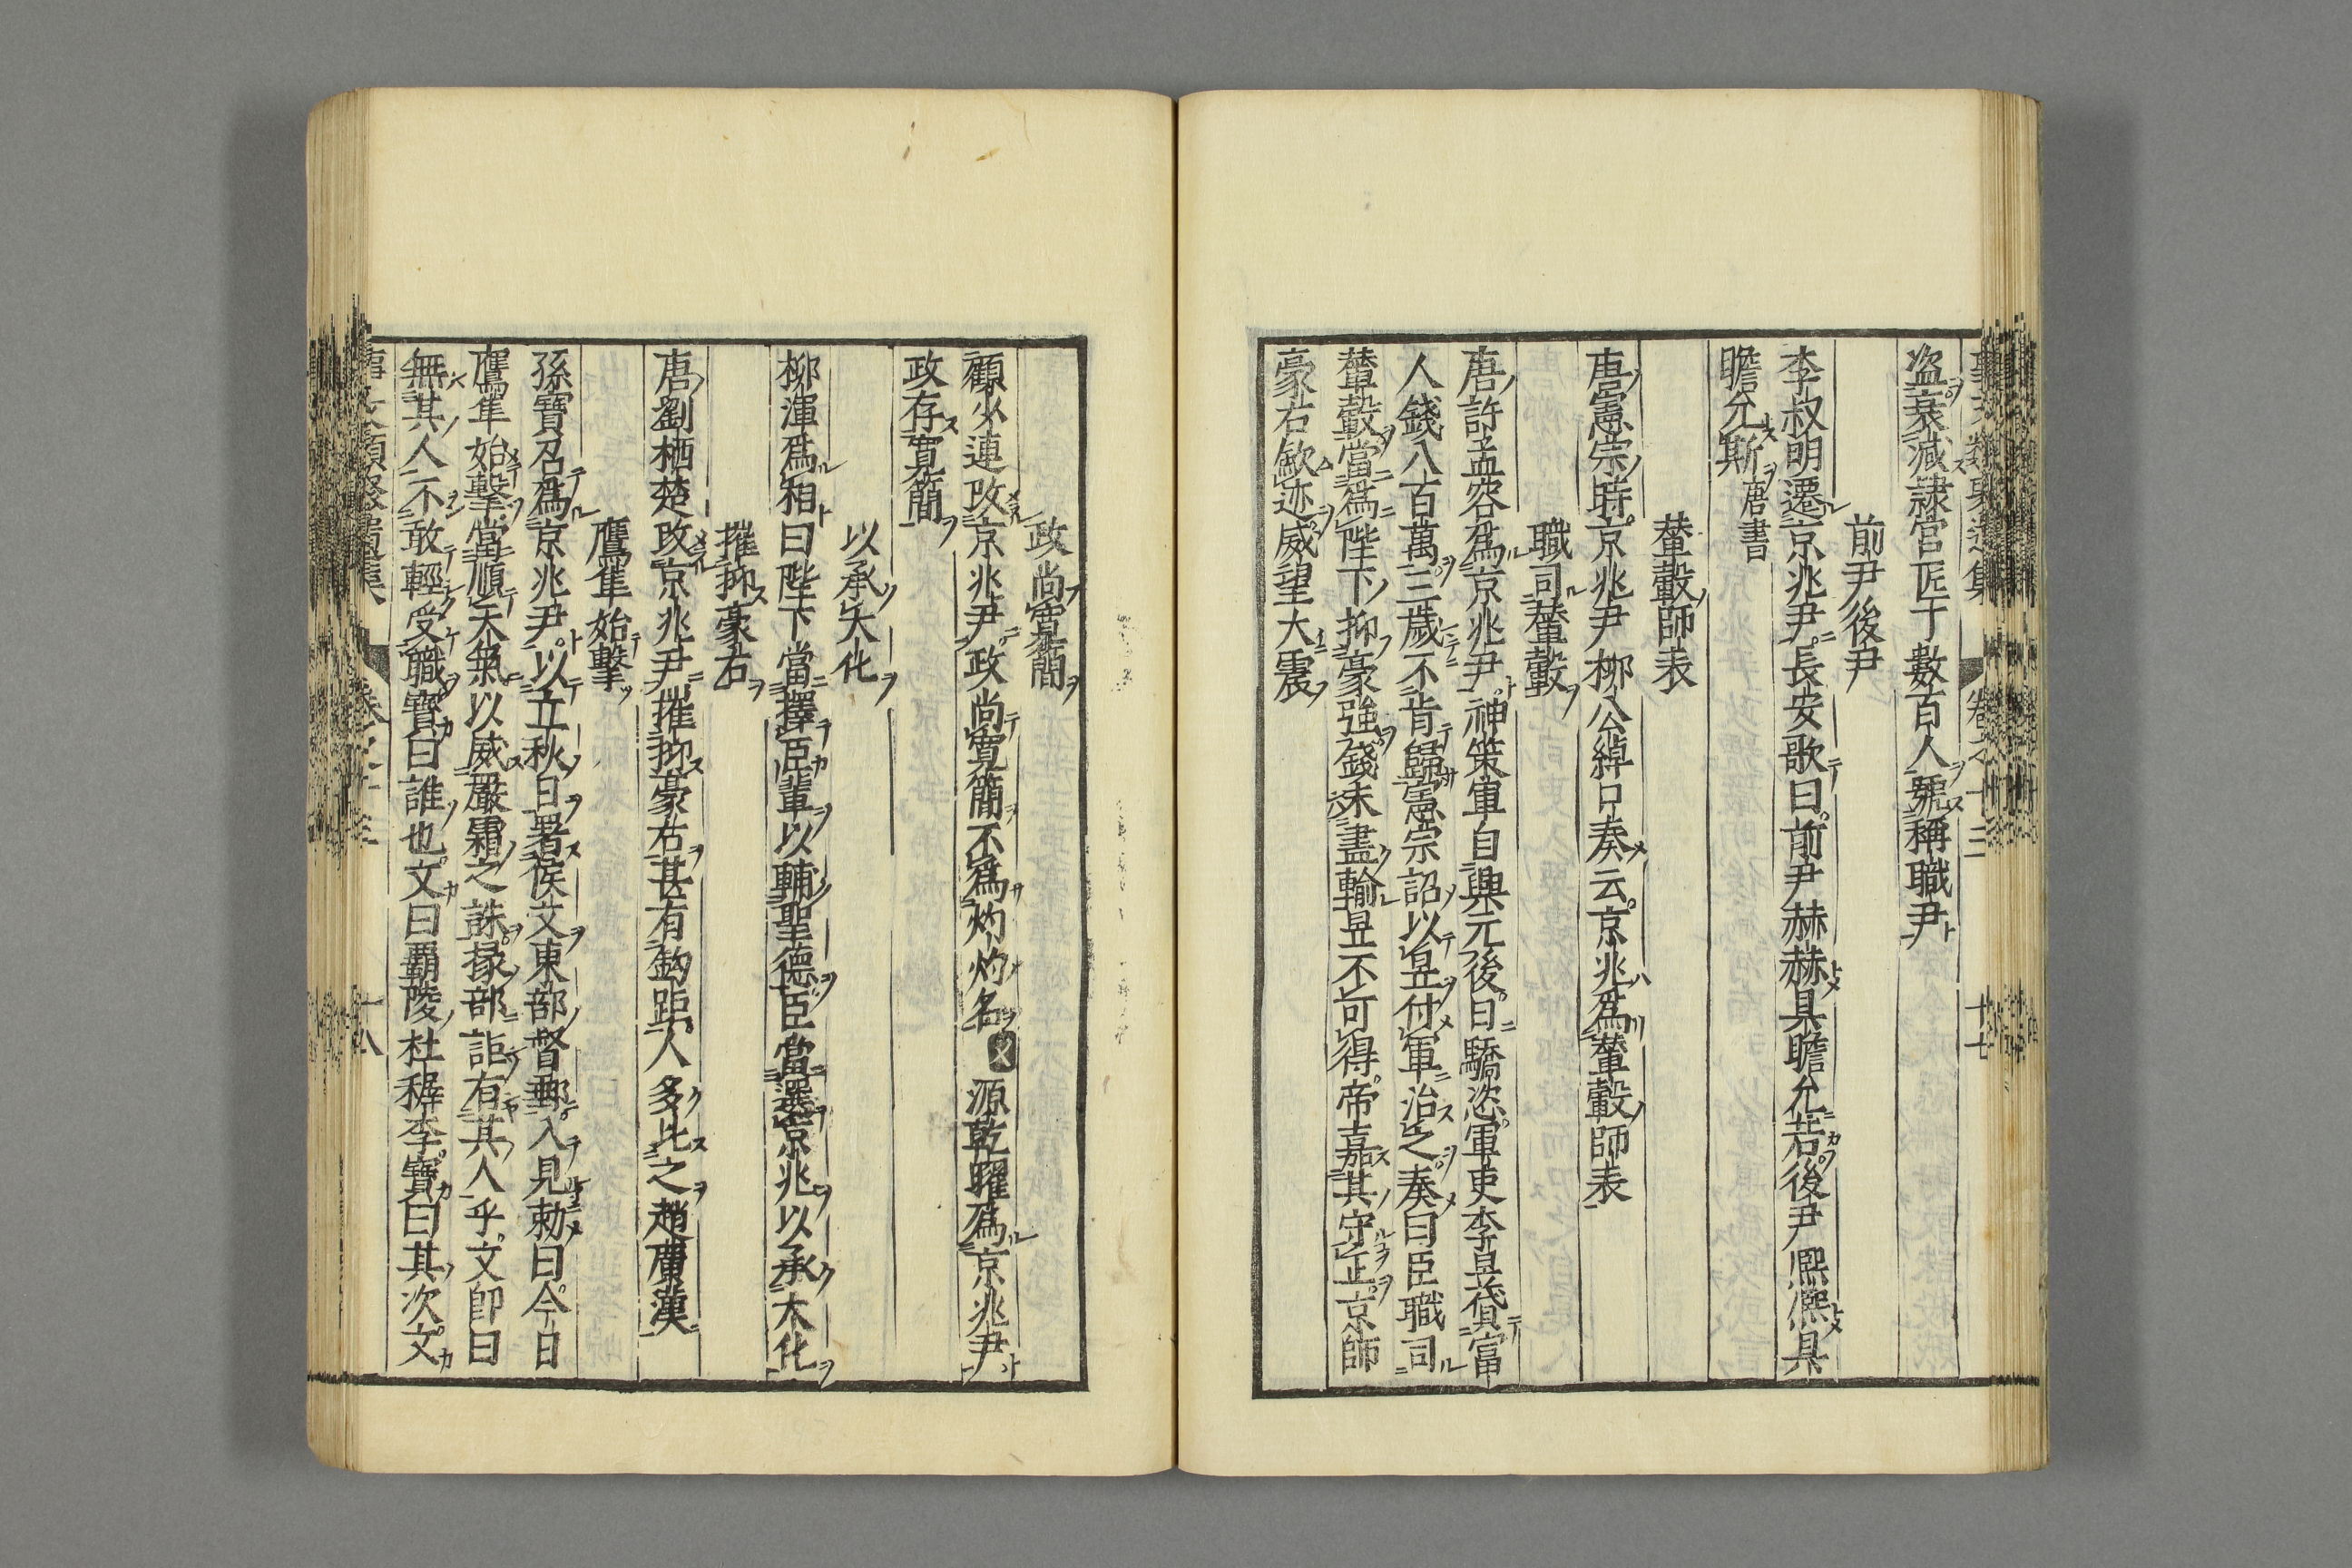 盗衰減隷官匠于數百人號稱職尹
前尹後尹
李叔明遷京兆尹長安歌曰前尹赫赫具瞻允若後尹熈熈具
瞻允斯唐書
輦轂師表
唐憲宗時京兆尹柳公綽口奏云京兆爲輦轂師表
職司輦轂
唐許孟容爲京兆尹神策軍自興元後日驕恣軍吏李昱貸富
人錢八百萬三歲不肯歸憲宗詔以昱付軍治之奏曰臣職司
輦轂當爲陛下抑豪強錢未盡輸昱不可得帝嘉其守正京師
豪右歛迹威望大震
政尚寛簡
顧少連改京兆尹政尚寛簡不爲灼灼名 源乾曜爲京兆尹
政存寛簡
以承大化
柳渾爲相曰陛下當擇臣輩以輔聖德臣當選京兆以承大化
摧抑豪右
唐劉栖楚改京兆尹摧抑豪右甚有鈎距人多比之趙廣漢
鷹隼始擊
孫寶召爲京兆尹以立秋日署侯文東部督郵入見勅曰今日
鷹隼始擊當順天氣以威嚴霜之誅掾部詎有其人乎文卽曰
無其人不敢輕受職寶曰誰也文曰覇陵杜穉李寶曰其次文
卷之十三
十八